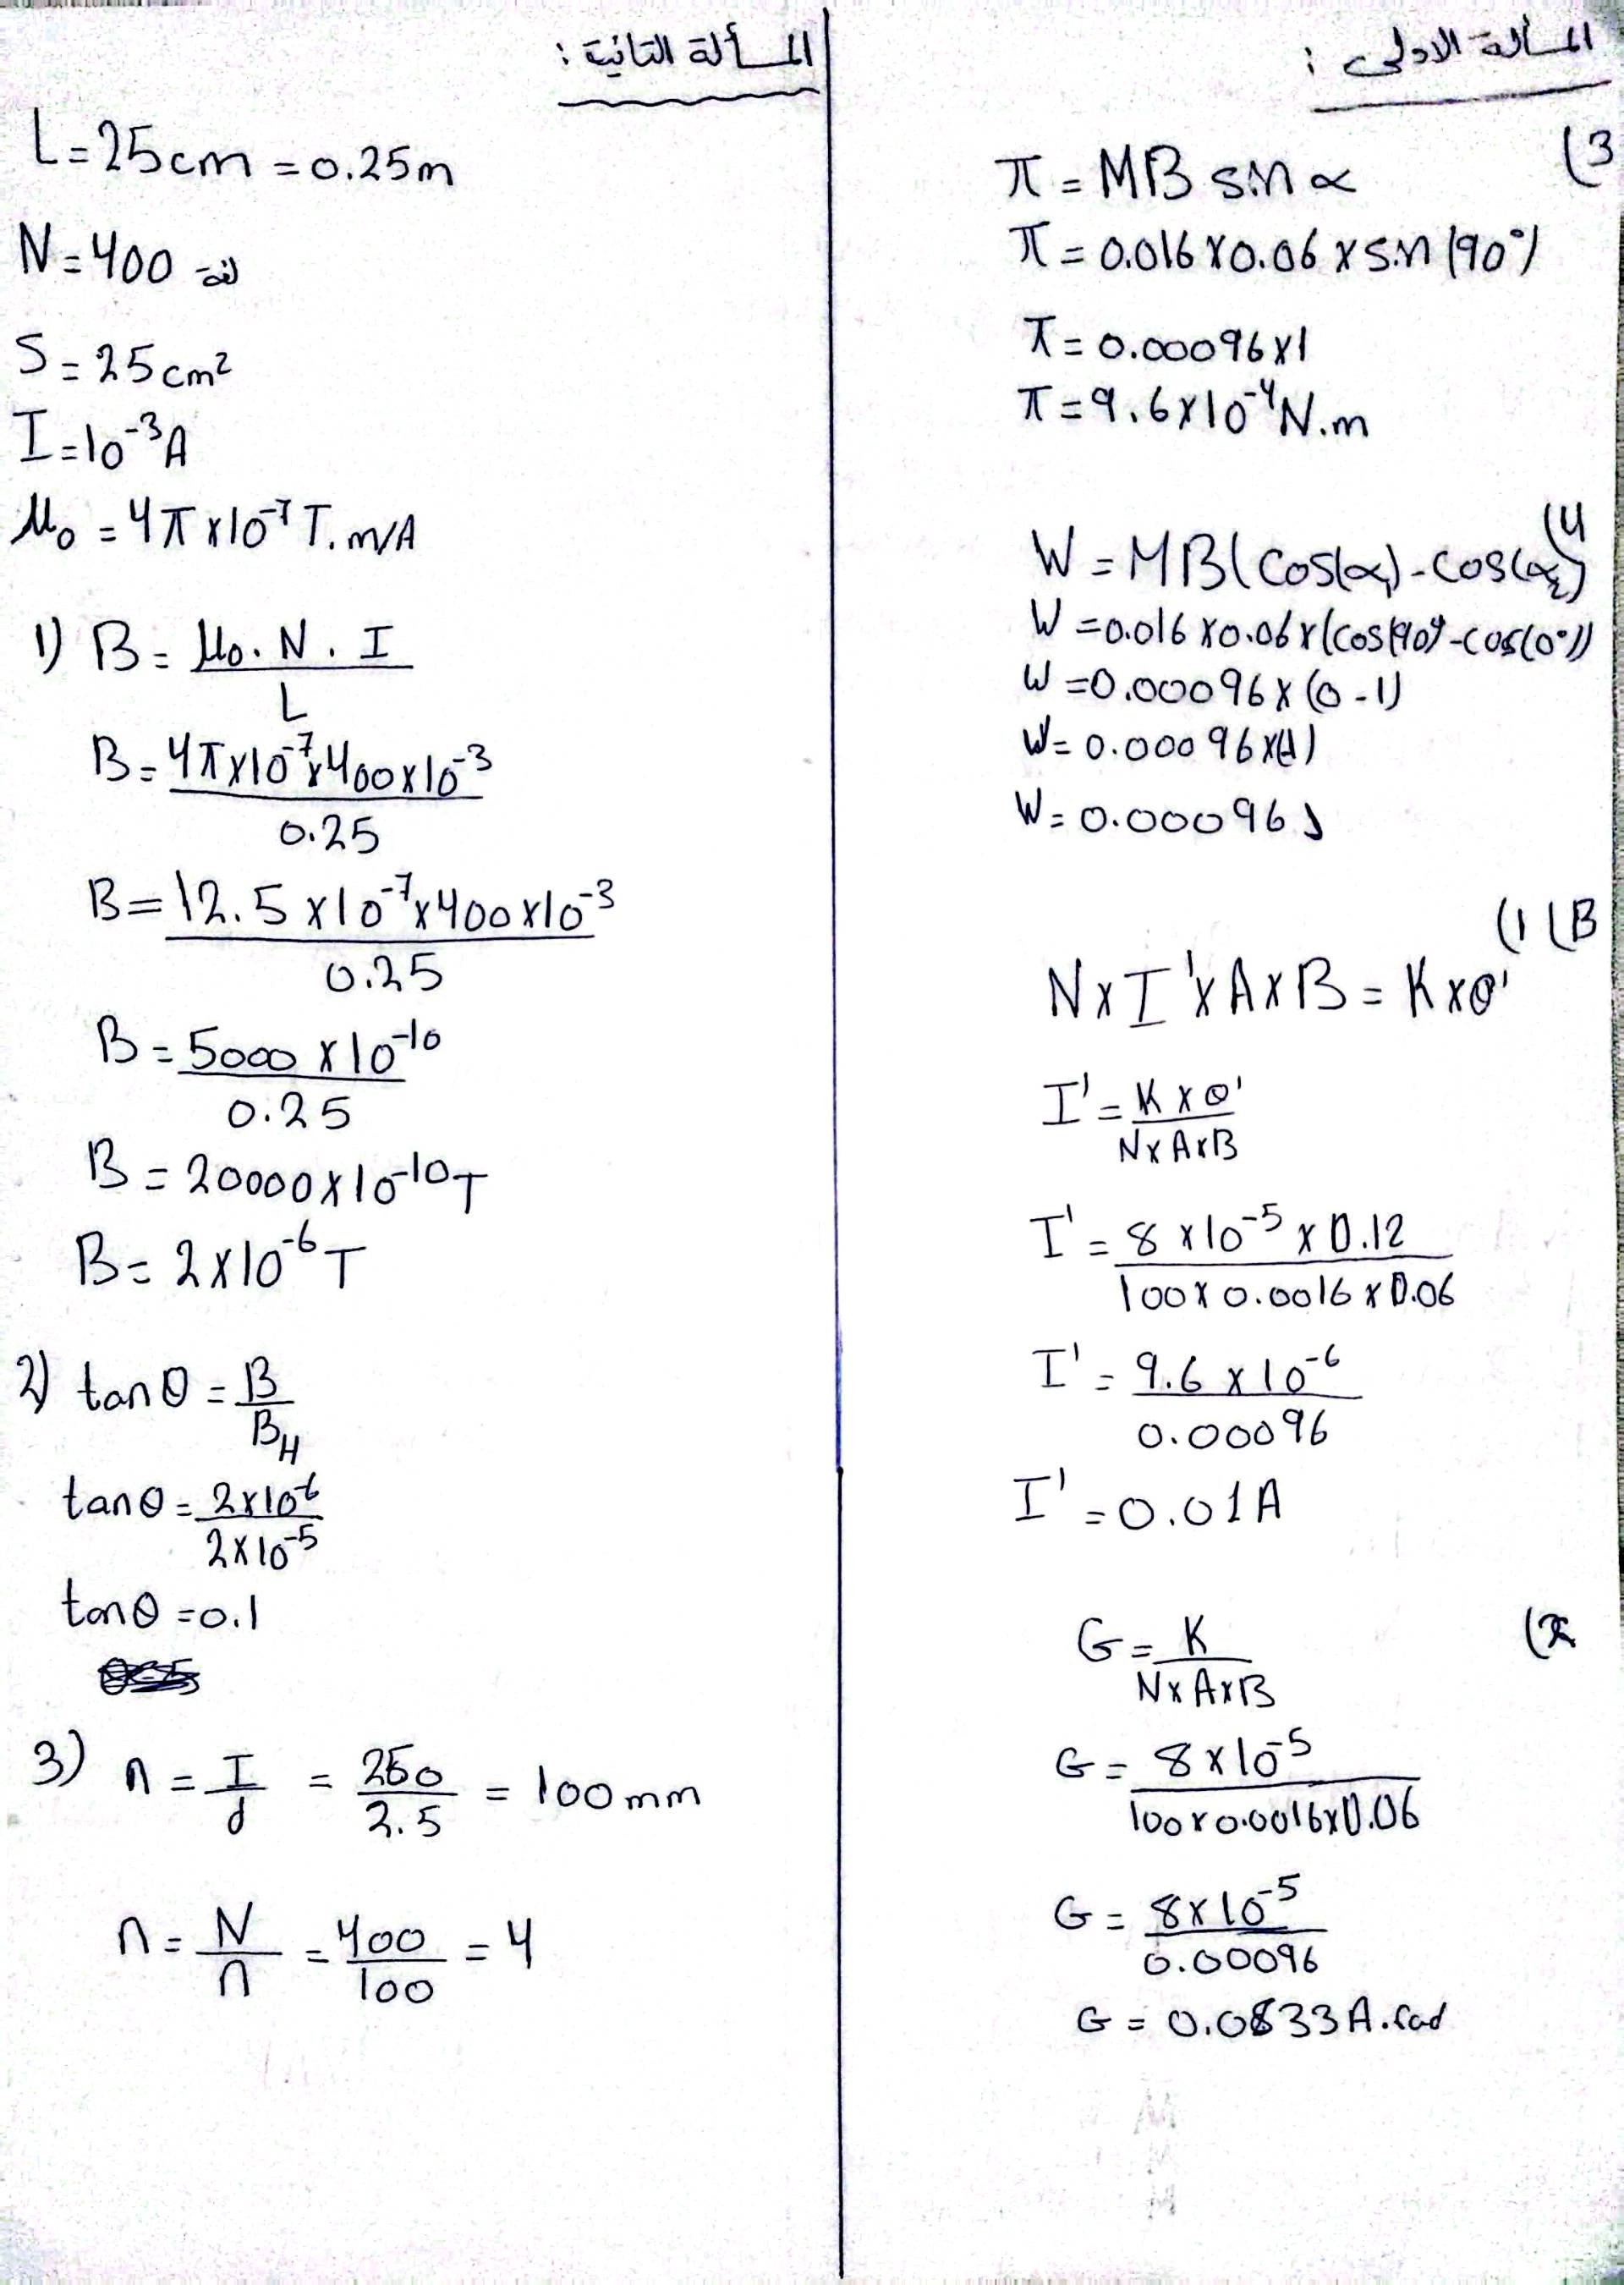 المسألة الاولى :
3)
π = MB sin α
π = 0.016 x 0.06 x sin (90°)
π = 0.00096 x 1
π = 9.6 x 10⁻⁴ N.m
4)
W = MB(cos(α₁) - cos(α₂))
W = 0.016 x 0.06 x (cos(90°) - cos(0°))
W = 0.00096 x (0 - 1)
W = 0.00096 x (-1)
W = 0.00096 J
B) 1)
N x I' x A x B = K x θ'
I' = K x θ' / N x A x B
I' = 8 x 10⁻⁵ x 0.12 / 100 x 0.0016 x 0.06
I' = 9.6 x 10⁻⁶ / 0.00096
I' = 0.01 A
2)
G = K / N x A x B
G = 8 x 10⁻⁵ / 100 x 0.0016 x 0.06
G = 8 x 10⁻⁵ / 0.00096
G = 0.0833 A.rad
المسألة الثانية :
L = 25 cm = 0.25 m
N = 400 لفة
S = 25 cm²
I = 10⁻³ A
μ₀ = 4π x 10⁻⁷ T.m/A
1) B = μ₀ . N . I / L
B = 4π x 10⁻⁷ x 400 x 10⁻³ / 0.25
B = 12.5 x 10⁻⁷ x 400 x 10⁻³ / 0.25
B = 5000 x 10⁻¹⁰ / 0.25
B = 20000 x 10⁻¹⁰ T
B = 2 x 10⁻⁶ T
2) tan θ = B / B_H
tan θ = 2 x 10⁻⁶ / 2 x 10⁻⁵
tan θ = 0.1
3) n = I / d = 250 / 2.5 = 100 mm
n = N / n = 400 / 100 = 4